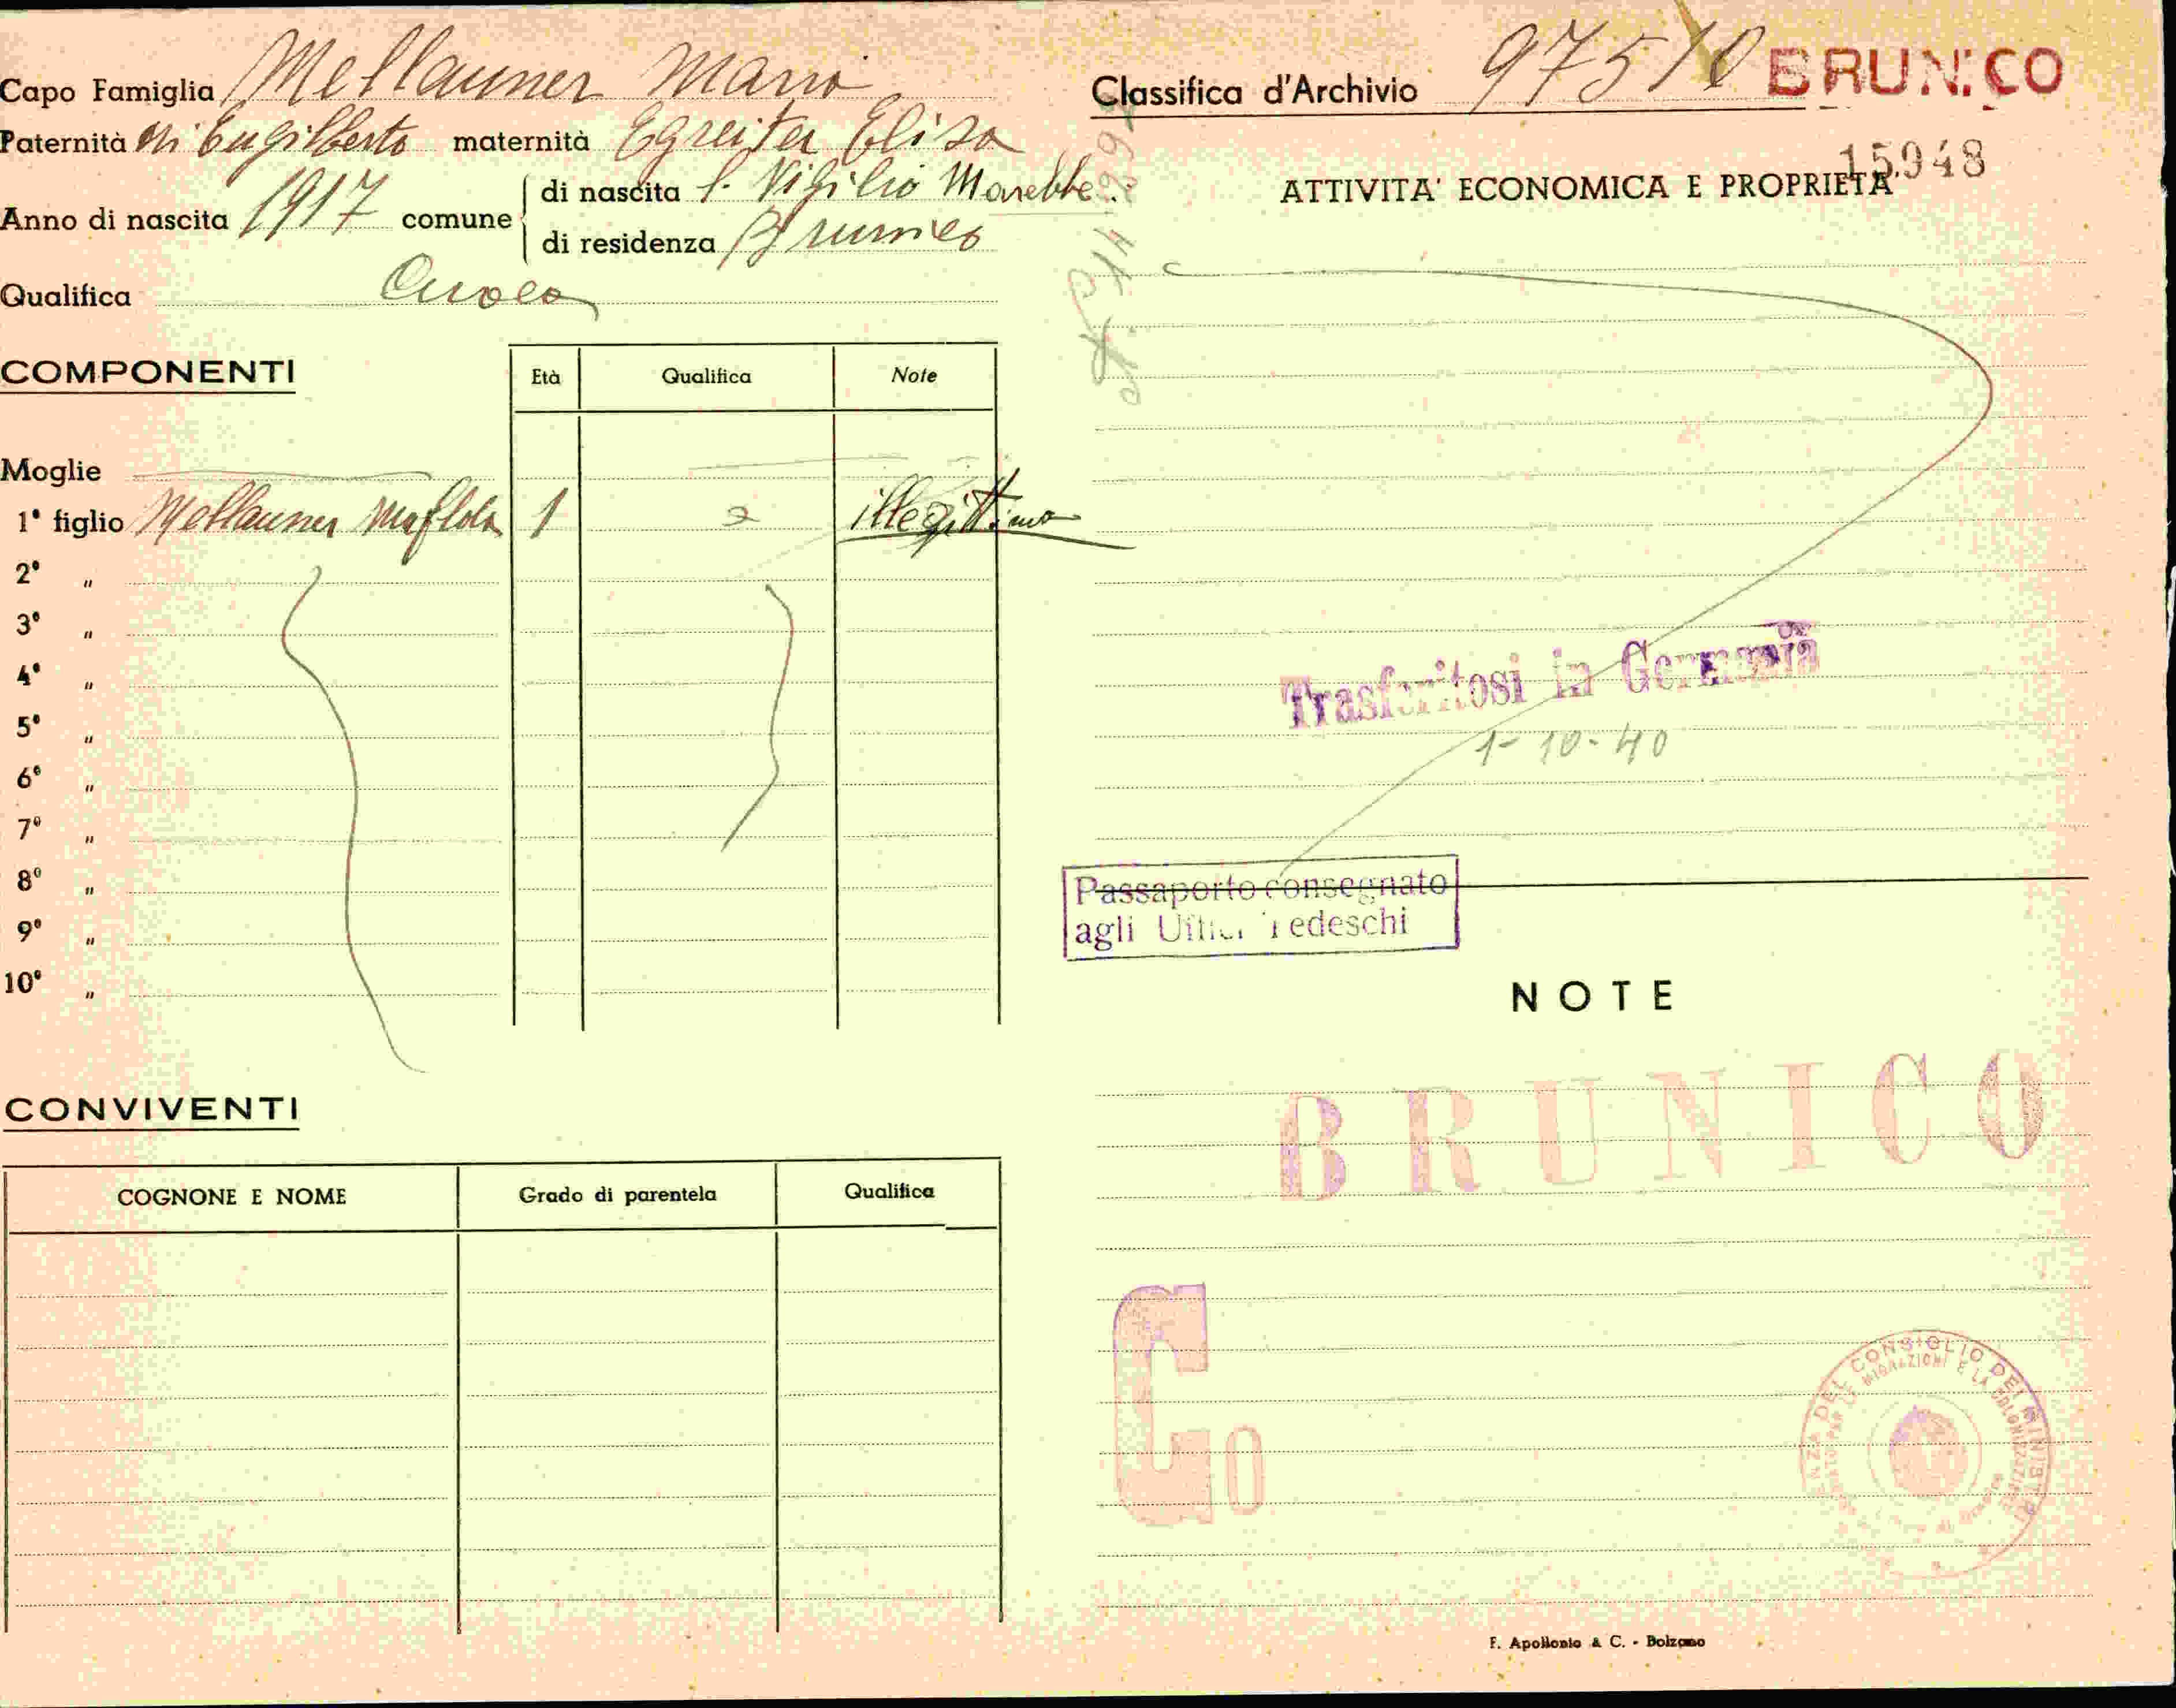 Capo Famiglia Mellauner Maria
Paternità di Engilberto maternità Egreiter Elisa
Anno di nascita 1917 comune
di nascita S. Vigilio Marebbe
di residenza Brunico
Qualifica Cuoca
COMPONENTI
Età Qualifica Note
Moglie
1° figlio Mellauner Mafalda 1 illegittima
2° "
3° "
4° "
5° "
6° "
7° "
8° "
9° "
10° "
CONVIVENTI
COGNONE E NOME Grado di parentela Qualifica
Classifica d'Archivio 97510 BRUNICO
15948
ATTIVITA' ECONOMICA E PROPRIETÀ
Trasferitosi in Germania
1-10-40
Passaporto consegnato
agli Uffici Tedeschi
NOTE
BRUNICO
Go
DEL CONSIGLIO DEI MINISTRI
F. Apollonio & C. - Bolzano